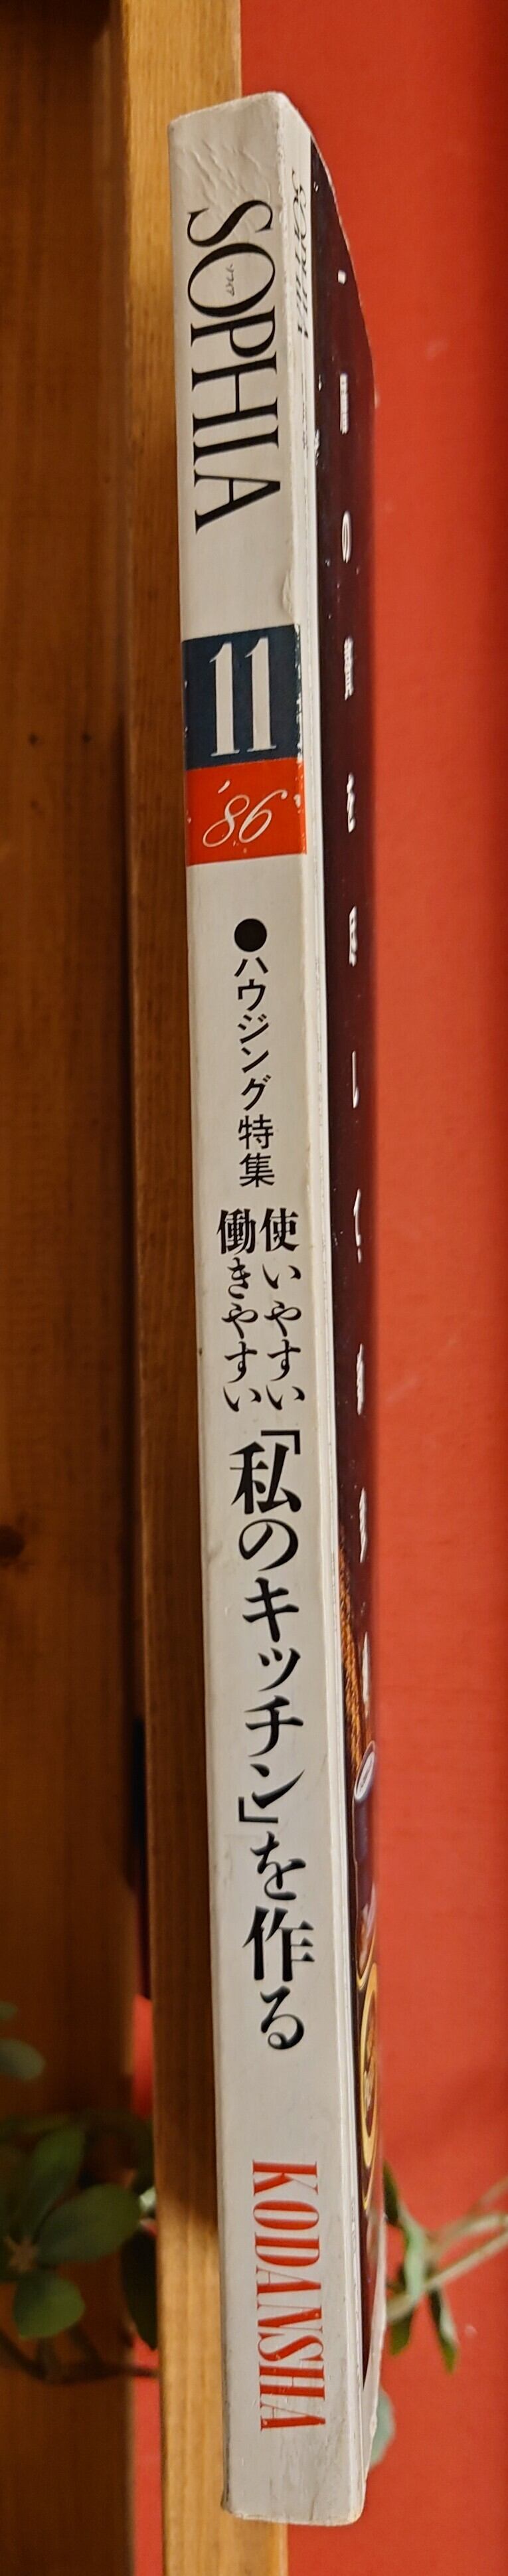 SOPHIA
ソフィア
11
'86
●ハウジング特集
使いやすい
働きやすい
「私のキッチン」を作る
KODANSHA
SOPHIA